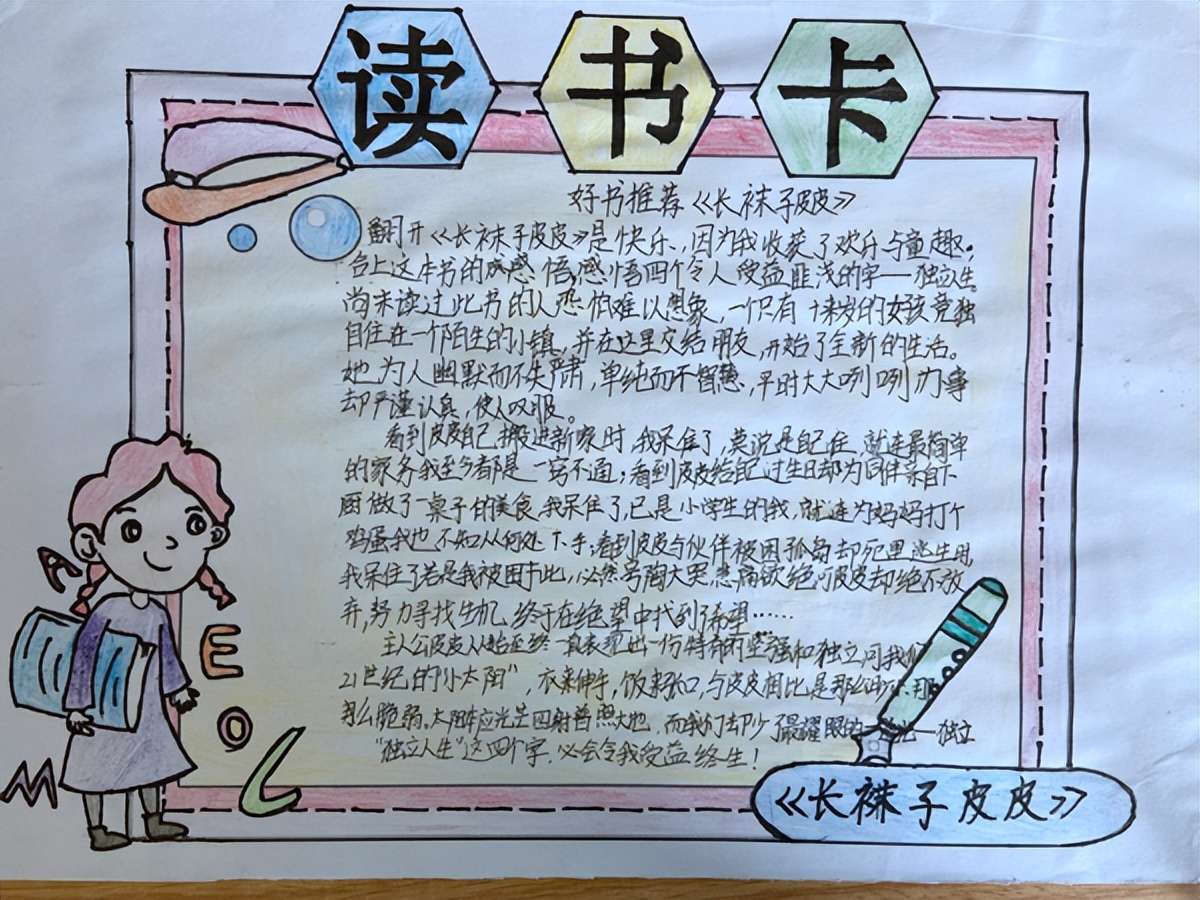 读书卡
好书推荐《长袜子皮皮》
翻开《长袜子皮皮》是快乐、因为我收获了欢乐与童趣;
合上这本书的成感悟,感悟四个令人受益匪浅的字——独立人生。
尚未读过此书的人恐怕难以想象,一个只有十来岁的女孩竟独
自住在一个陌生的小镇,并在这里交结朋友,开始了全新的生活。
她为人幽默而不失严肃,单纯而不智慧,平时大大咧咧办事
却严谨认真,使人叹服。
看到皮皮自己搬进新家时,我呆住了,莫说是自己住,就连最简单
的家务我至今都是一窍不通;看到皮皮给自己过生日却为同伴亲自下
厨做了一桌子的美食,我呆住了,已是小学生的我,就连为妈妈打个
鸡蛋我也不知从何处下手;看到皮皮与伙伴被困孤岛却死里逃生时,
我呆住了若是我被困于此,必然号啕大哭,悲痛欲绝,可皮皮却绝不放
弃,努力寻找生机,终于在绝望中找到了希望……
主人公皮皮从始至终一直表现出一份特有的坚强和独立,可我们
21世纪的"小太阳",衣来伸手,饭来张口,与皮皮相比是那么
那么脆弱。太阳本应光芒四射普照大地,而我们却少了最耀眼的一 光—独立
"独立人生"这四个字,必会令我受益终生!
A
E
O
M
L
《长袜子皮皮》